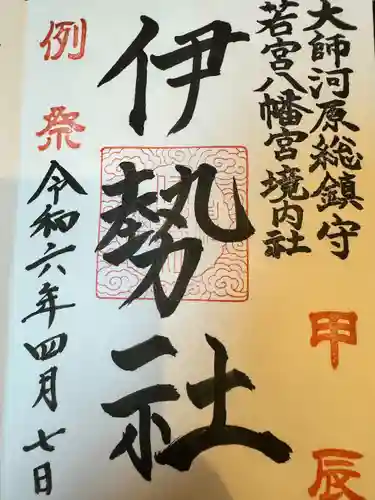 大師河原総鎮守
若宮八幡宮境内社
甲辰
伊勢社
例祭
令和六年四月七日